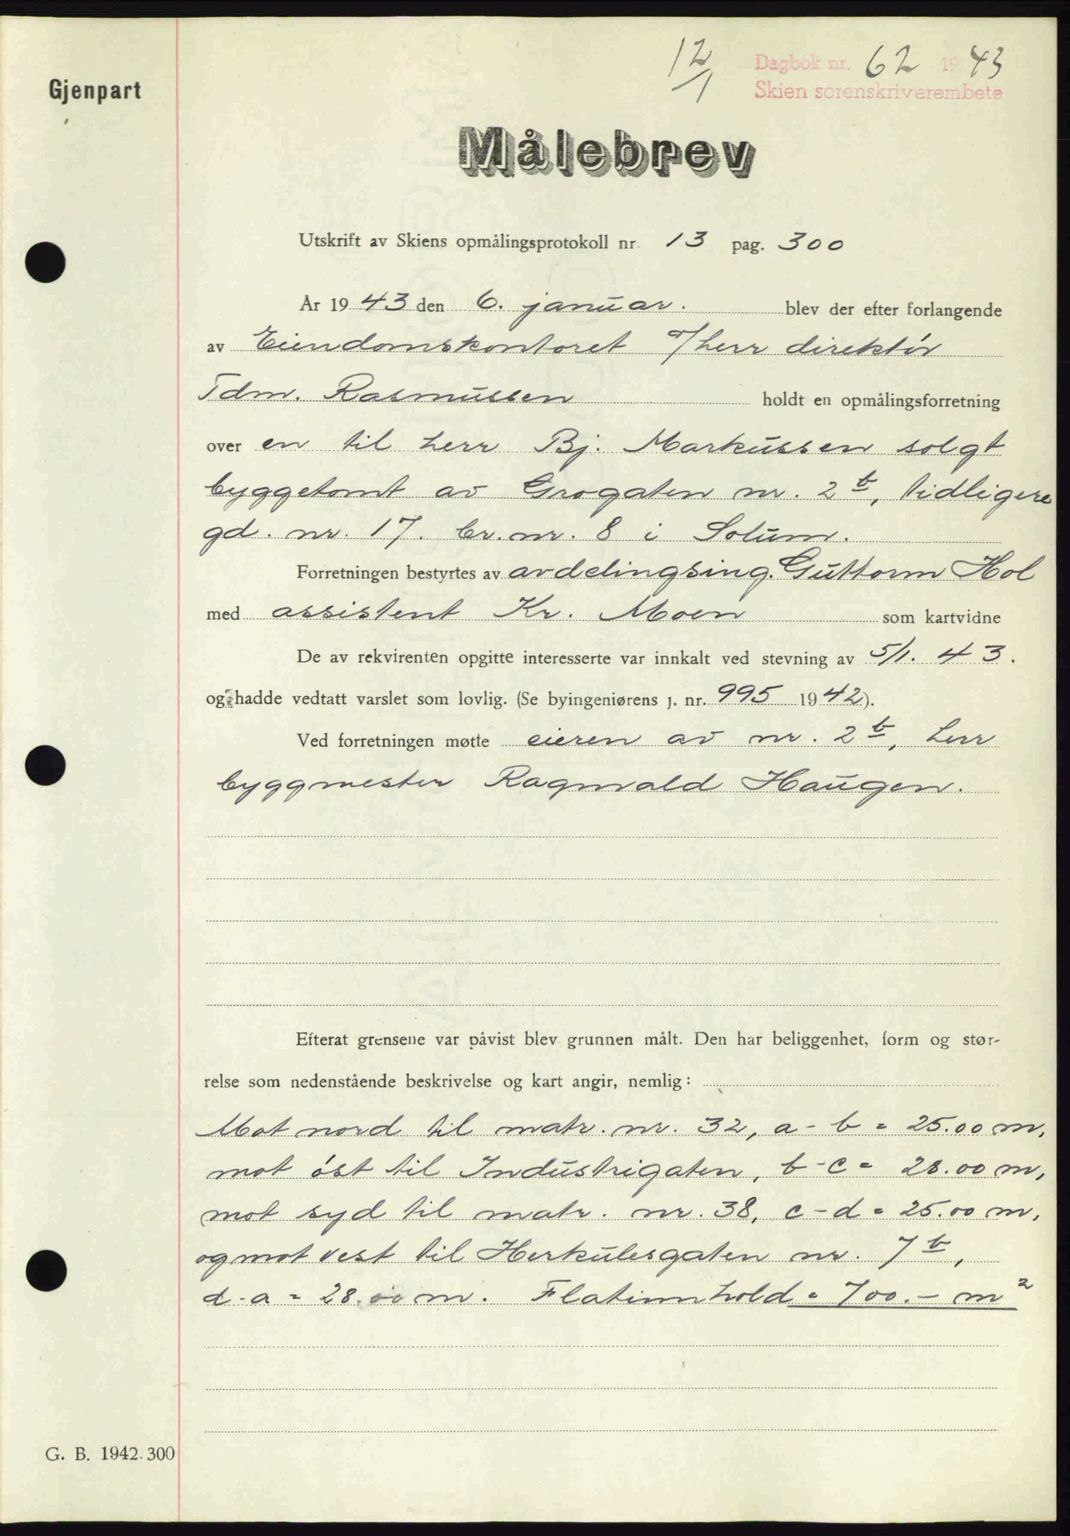 Gjenpart
12/1
Dagbok nr. 62 1943
Skien sorenskriverembete
Målebrev
Utskrift av Skiens opmålingsprotokoll nr 13 pag. 300
År 1943 den 6. januar. blev der efter forlangende
av Eiendomskontoret v/ herr direktör
Tdm. Rasmussen holdt en opmålingsforretning
over en til herr Bj. Markussen solgt
byggetomt av Grogaten nr. 2b, tidligere
gd. nr. 17. br. nr. 8 i Solum.
Forretningen bestyrtes av avdelingsing. Guttorm Hol
med assistent Kr. Moen som kartvidne
De av rekvirenten opgitte interesserte var innkalt ved stevning av 5/1. 43.
og hadde vedtatt varslet som lovlig. (Se byingeniørens j. nr. 995 1942).
Ved forretningen møtte eieren av nr. 2b, herr
byggmester Ragnvald Haugen.
Efterat grensene var påvist blev grunnen målt. Den har beliggenhet, form og stør-
relse som nedenstående beskrivelse og kart angir, nemlig:
Mot nord til matr. nr. 32, a - b = 25.00 m,
mot öst til Industrigaten, b - c = 28.00 m,
mot syd til matr. nr. 38, c - d = 25.00 m,
og mot vest til Herkulesgaten nr. 7b,
d - a = 28.00 m. Flatinnhold = 700.- m²
G. B. 1942. 300